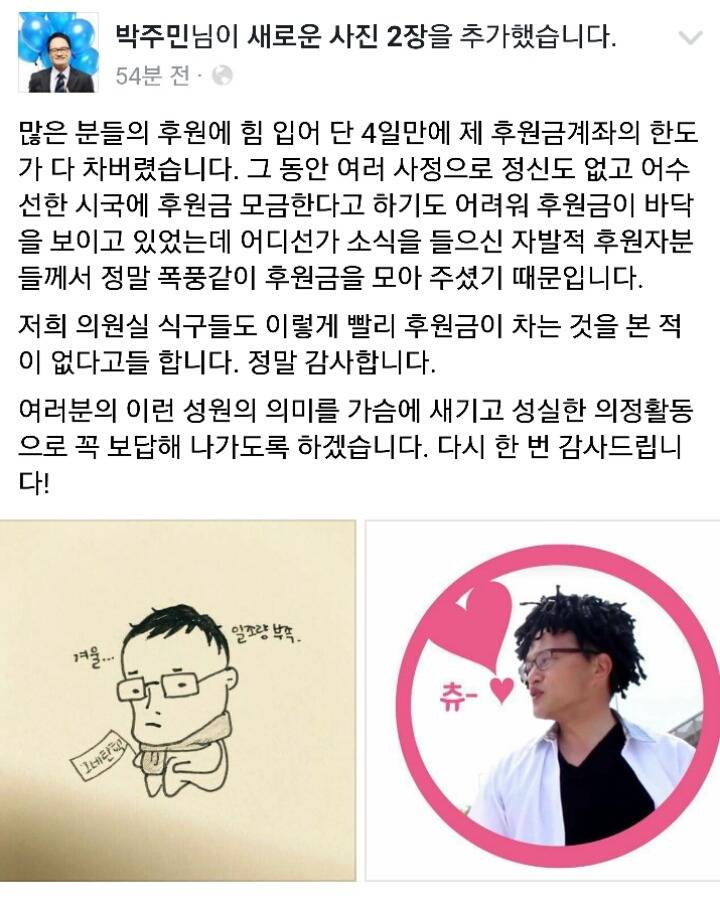 박주민님이 새로운 사진 2장을 추가했습니다.
54분 전 ·
많은 분들의 후원에 힘 입어 단 4일만에 제 후원금계좌의 한도
가 다 차버렸습니다. 그 동안 여러 사정으로 정신도 없고 어수
선한 시국에 후원금 모금한다고 하기도 어려워 후원금이 바닥
을 보이고 있었는데 어디선가 소식을 들으신 자발적 후원자분
들께서 정말 폭풍같이 후원금을 모아 주셨기 때문입니다.
저희 의원실 식구들도 이렇게 빨리 후원금이 차는 것을 본 적
이 없다고들 합니다. 정말 감사합니다.
여러분의 이런 성원의 의미를 가슴에 새기고 성실한 의정활동
으로 꼭 보답해 나가도록 하겠습니다. 다시 한 번 감사드립니
다!
겨울...
일조량 부족.
그네탄핵
츄-